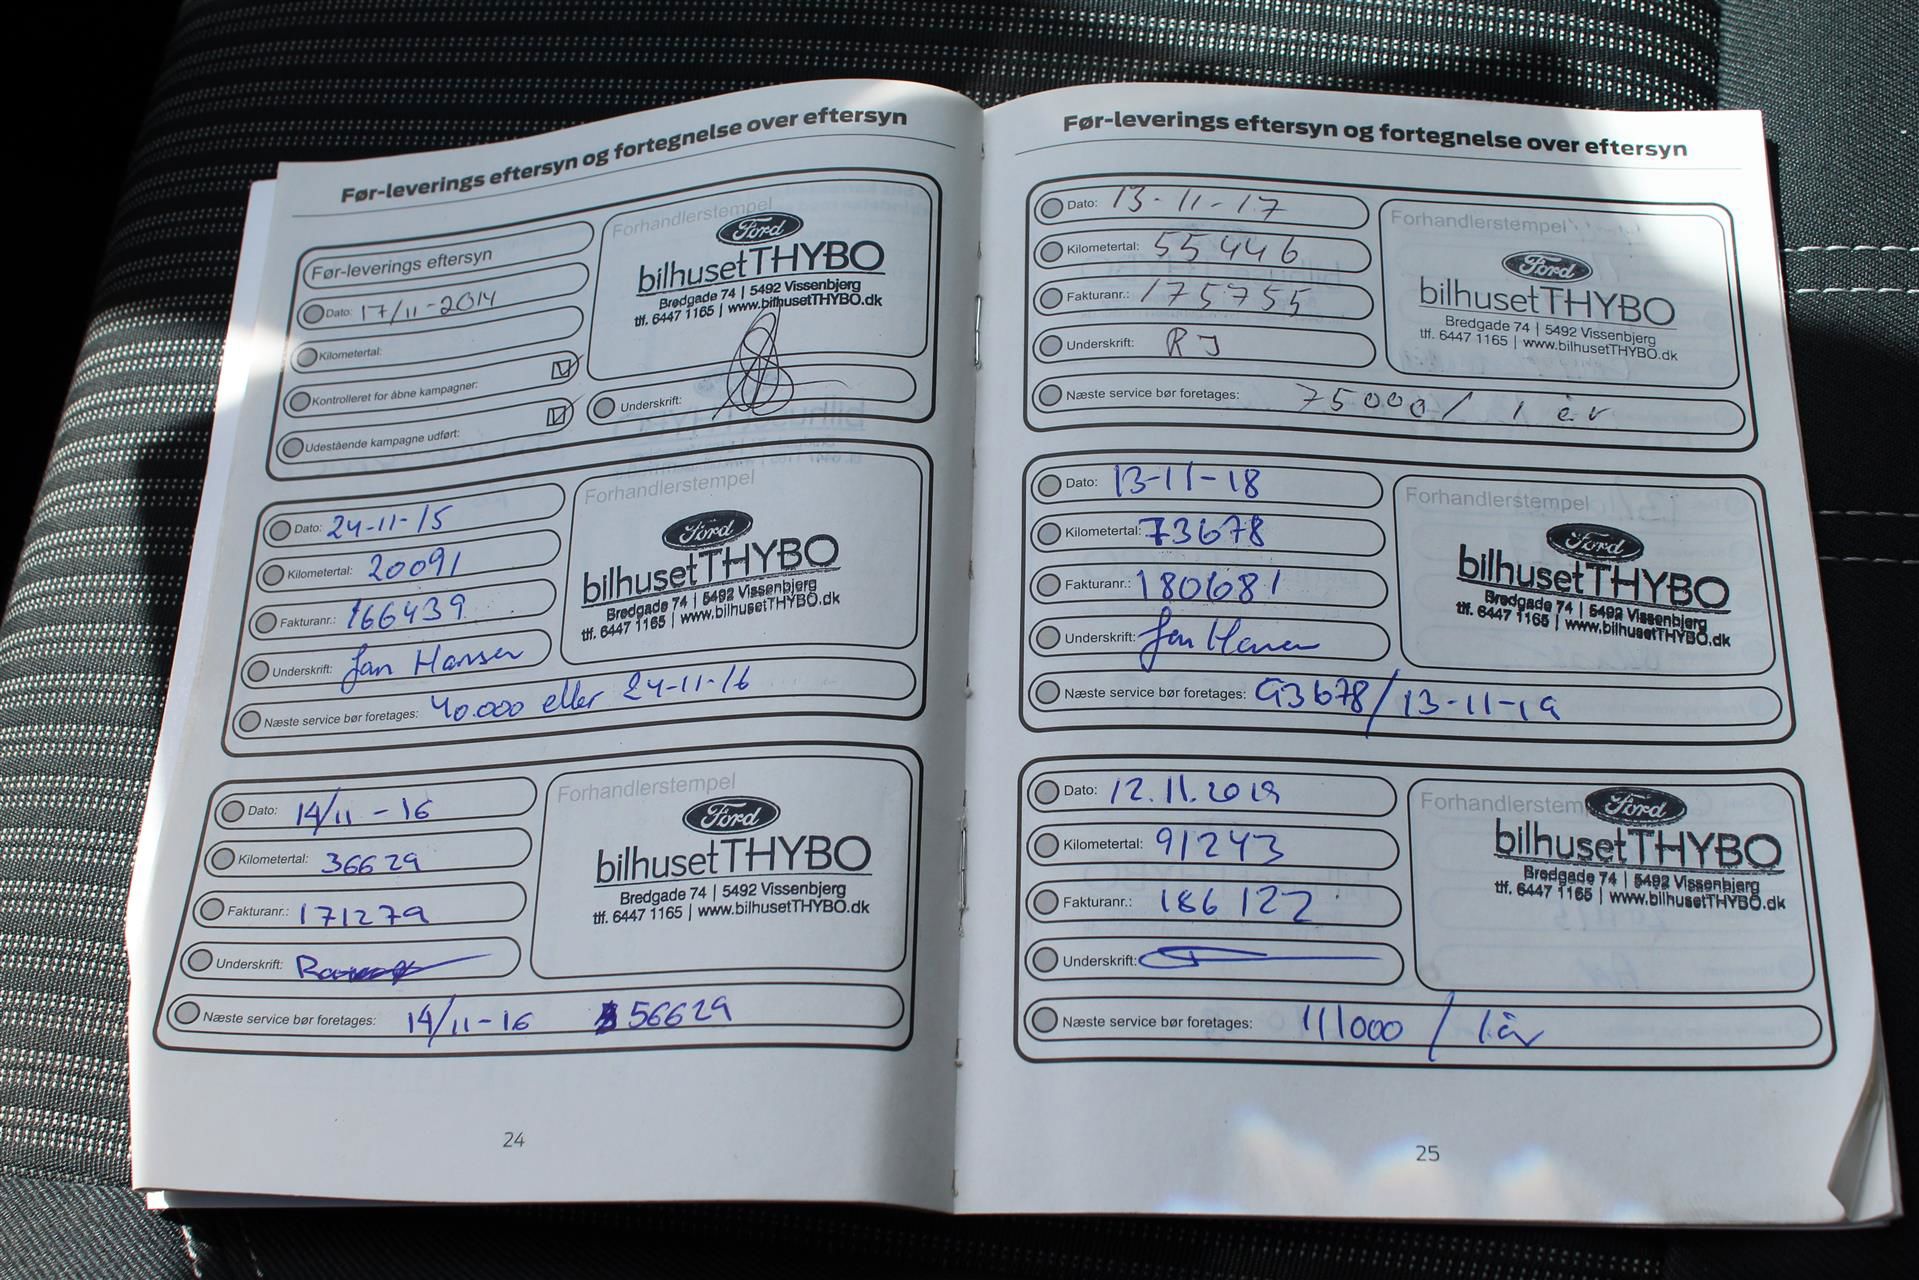 Før-leverings eftersyn og fortegnelse over eftersyn
Før-leverings eftersyn
Dato: 17/11-2014
Kilometertal:
Kontrolleret for åbne kampagner:
Udestående kampagne udført:
Forhandlerstempel
Ford
bilhusetTHYBO
Bredgade 74 | 5492 Vissenbjerg
tlf. 6447 1165 | www.bilhusetTHYBO.dk
Underskrift:
Dato: 24-11-15
Kilometertal: 20091
Fakturanr.: 166439
Underskrift: Jan Hansen
Næste service bør foretages: 40.000 eller 24-11-16
Forhandlerstempel
Ford
bilhusetTHYBO
Bredgade 74 | 5492 Vissenbjerg
tlf. 6447 1165 | www.bilhusetTHYBO.dk
Dato: 14/11-16
Kilometertal: 36629
Fakturanr.: 171279
Underskrift:
Næste service bør foretages: 14/11-16 56629
Forhandlerstempel
Ford
bilhusetTHYBO
Bredgade 74 | 5492 Vissenbjerg
tlf. 6447 1165 | www.bilhusetTHYBO.dk
24
Før-leverings eftersyn og fortegnelse over eftersyn
Dato: 13-11-17
Kilometertal: 55446
Fakturanr.: 175755
Underskrift: RJ
Næste service bør foretages: 75000/ 1 år
Forhandlerstempel
Ford
bilhusetTHYBO
Bredgade 74 | 5492 Vissenbjerg
tlf. 6447 1165 | www.bilhusetTHYBO.dk
Dato: 13-11-18
Kilometertal: 73678
Fakturanr.: 180681
Underskrift: Jan Hansen
Næste service bør foretages: 93678/13-11-19
Forhandlerstempel
Ford
bilhusetTHYBO
Bredgade 74 | 5492 Vissenbjerg
tlf. 6447 1165 | www.bilhusetTHYBO.dk
Dato: 12.11.2019
Kilometertal: 91243
Fakturanr.: 186122
Underskrift:
Næste service bør foretages: 111000 / 1 år
Forhandlerstem
Ford
bilhusetTHYBO
Bredgade 74 | 5492 Vissenbjerg
tlf. 6447 1165 | www.bilhusetTHYBO.dk
25